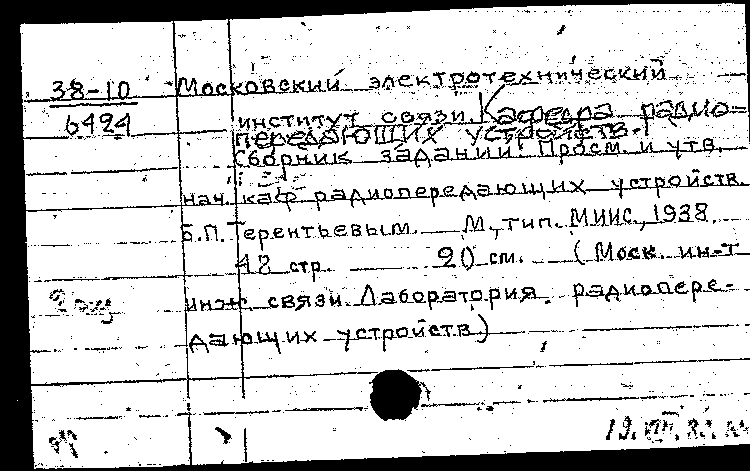 38-10 Московский электротехнический
6424 институт связи. Кафедра радио-
передающих устройств.
Сборник заданий. Просм. и утв.
нач. каф радиопередающих устройств
Б.П. Терентьевым. М., тип. МИИС, 1938.
42 стр. 20 см. (Моск. ин-т
2 экз инж. связи. Лаборатория радиопере-
дающих устройств)